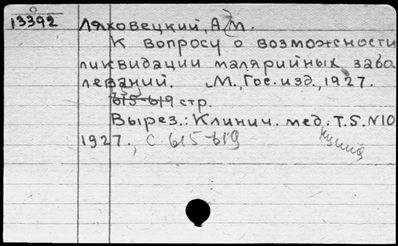 13392 Ляховецкий, А. М.
К вопросу о возможности
ликвидации малярийных забо
леваний. М., Гос. изд., 1927.
615-619 стр.
Вырез.: Клинич. мед. Т.5. N10
1927., с. 615-619